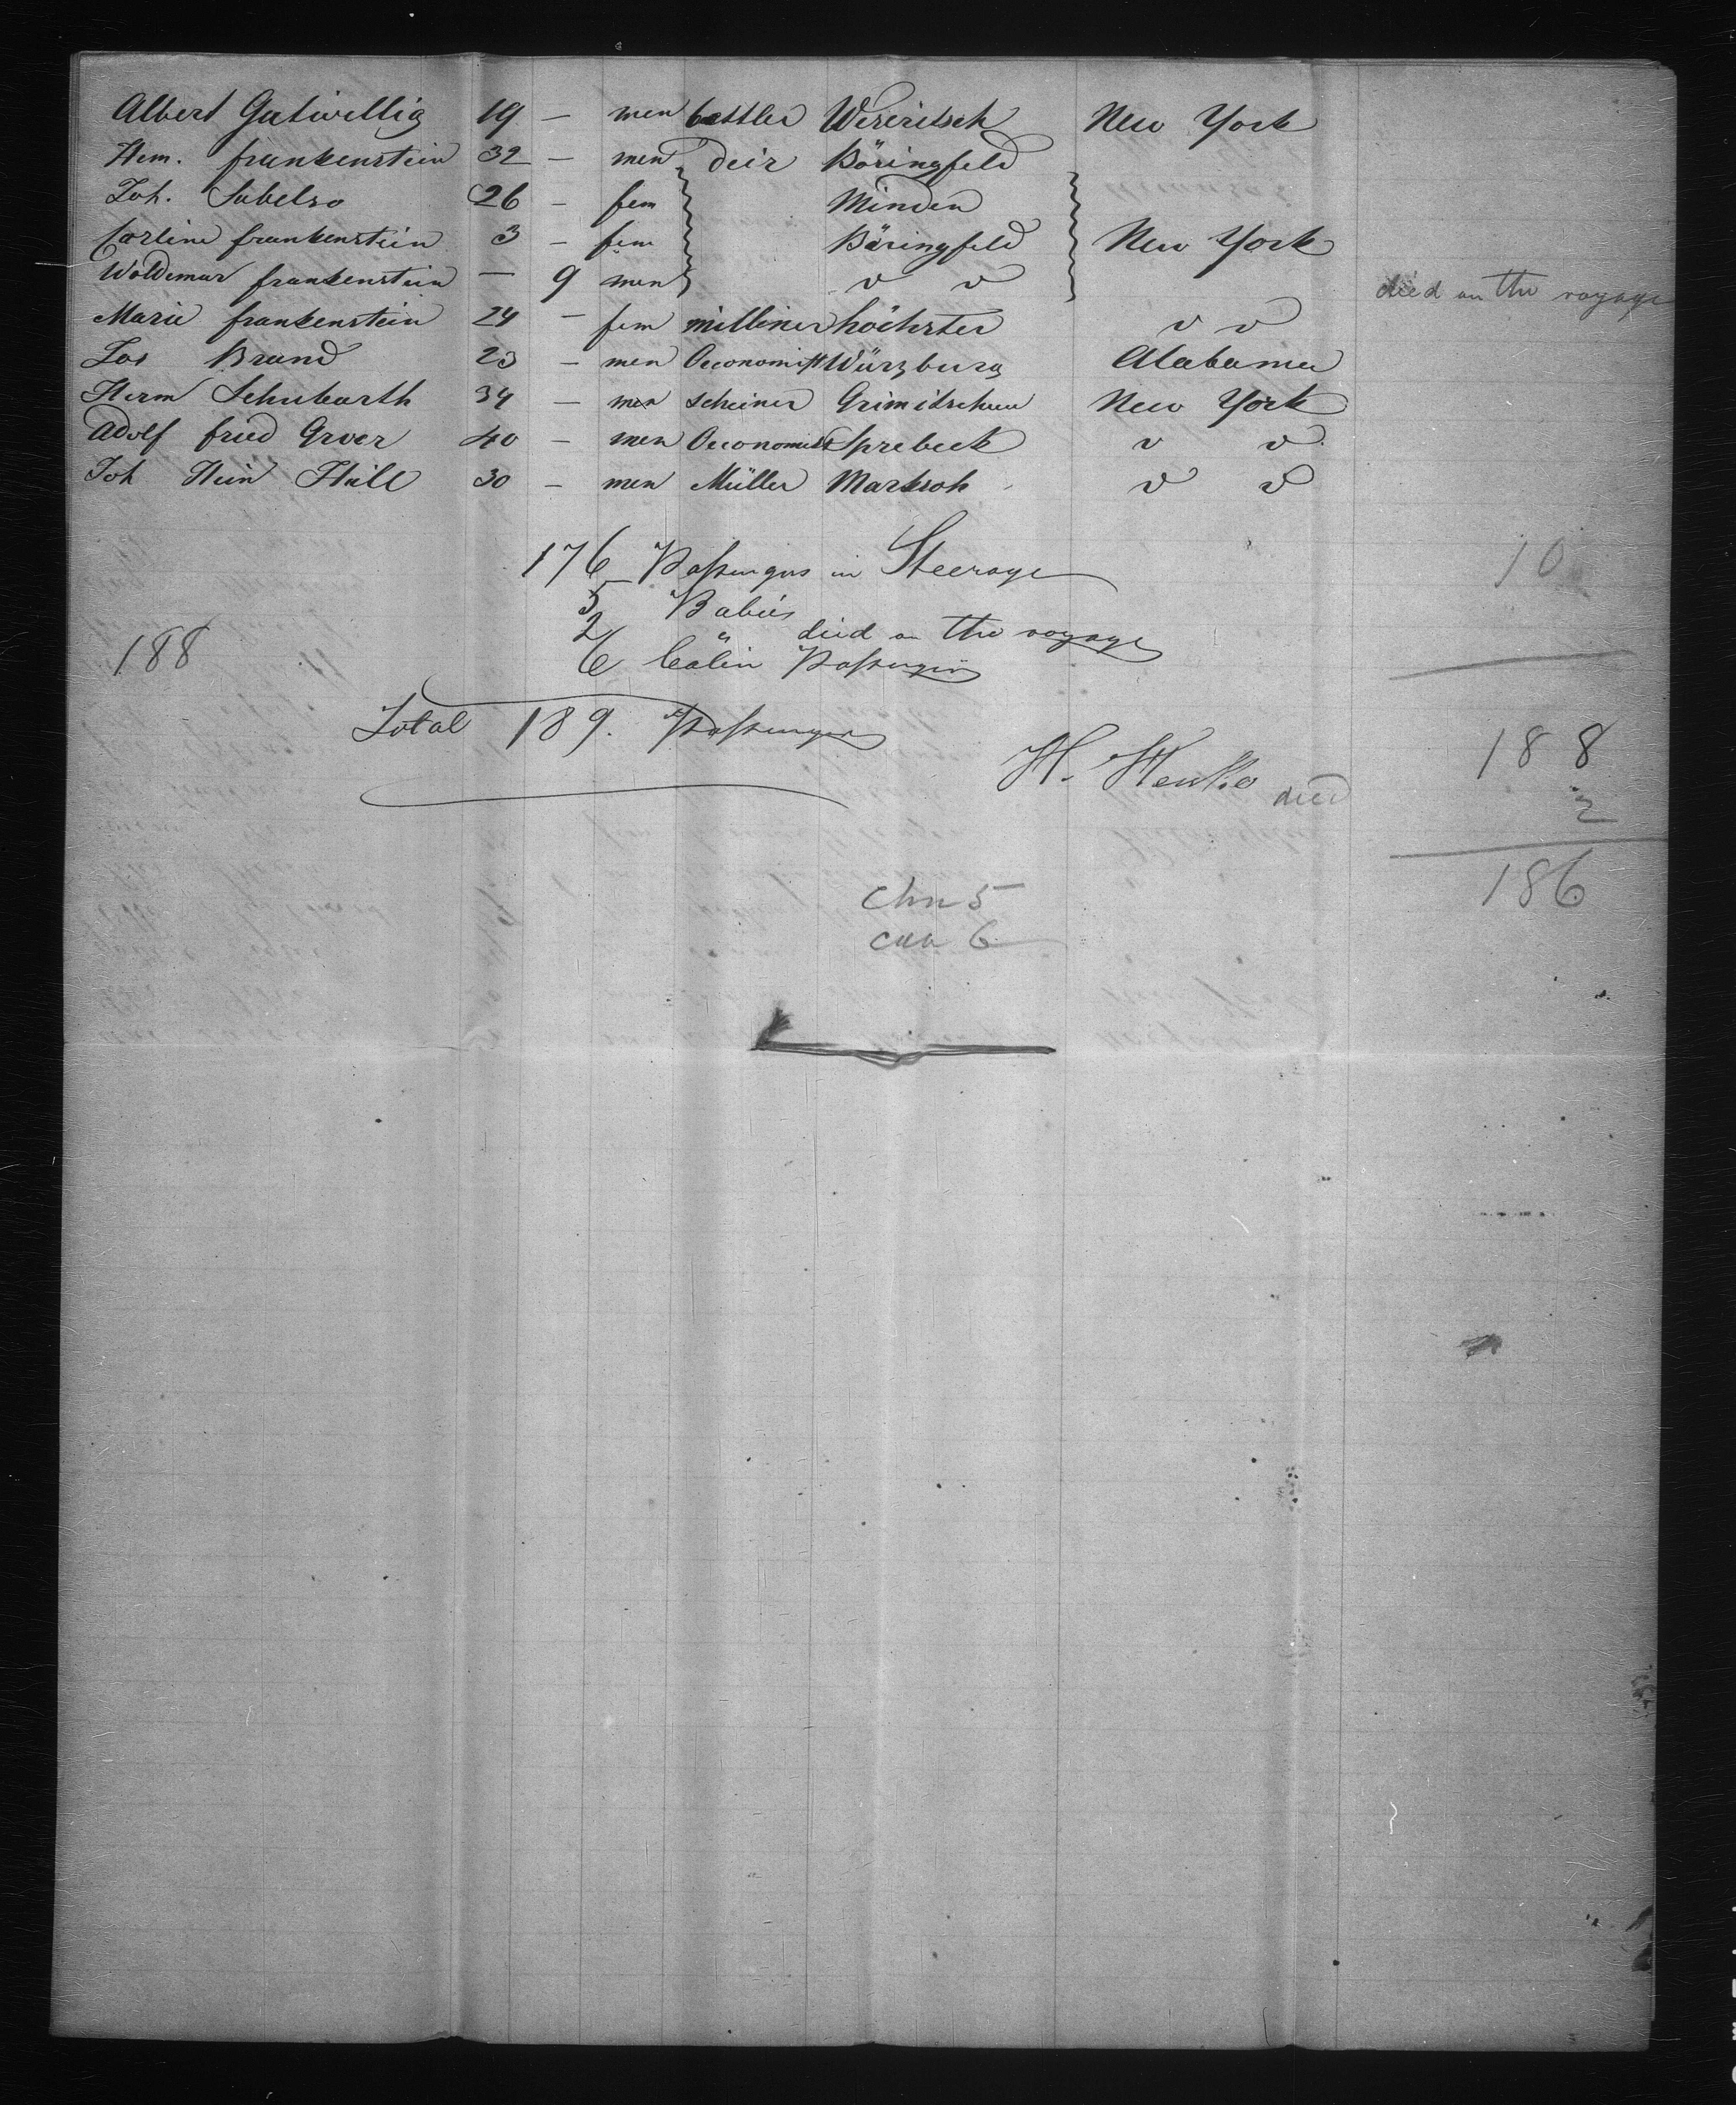 Albert Gutwillig 19 — men bettler Weseritsch New York
Hem. frankenstein 32 — men Deir Böringfeld
Joh. Sabelso 26 — fem Minden
Carline frankenstein 3 — fem Böringfeld New York
Woldemar frankenstein — 9 men " " died on the voyage
Marie frankenstein 24 — fem milliner höchster " "
Jos Brand 23 — men Oeconomist Würzburg Alabama
Herm Schubarth 34 — men scheiner New York
Adolf fried Grver 40 — men Oeconomist Sprebeck " "
Joh Hein Hill 30 — men Müller Marksoh " "
176 Passengers in Steerage 10
5 Babies
2 " died on the voyage
188 6 Cabin Passengers
Total 189. Passengers
H. Henke died 188
2
186
chn 5
cab 6